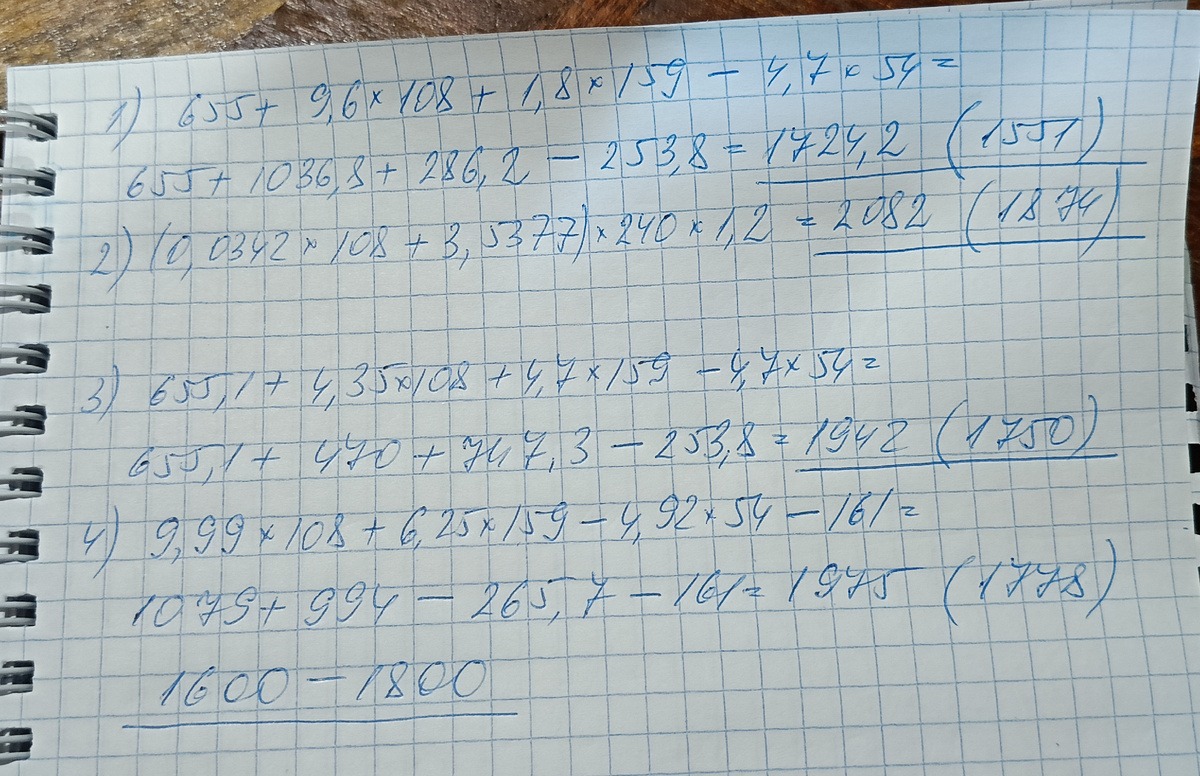 1) 655 + 9,6 × 108 + 1,8 × 159 − 4,7 × 54 =
655 + 1036,8 + 286,2 − 253,8 = 1724,2 (1551)
2) (0,0342 × 108 + 3,5377) × 240 × 1,2 = 2082 (1874)
3) 655,1 + 4,35 × 108 + 4,7 × 159 − 4,7 × 54 =
655,1 + 470 + 747,3 − 253,8 = 1942 (1750)
4) 9,99 × 108 + 6,25 × 159 − 4,92 × 54 − 161 =
1079 + 994 − 265,7 − 161 = 1975 (1778)
1600 − 1800